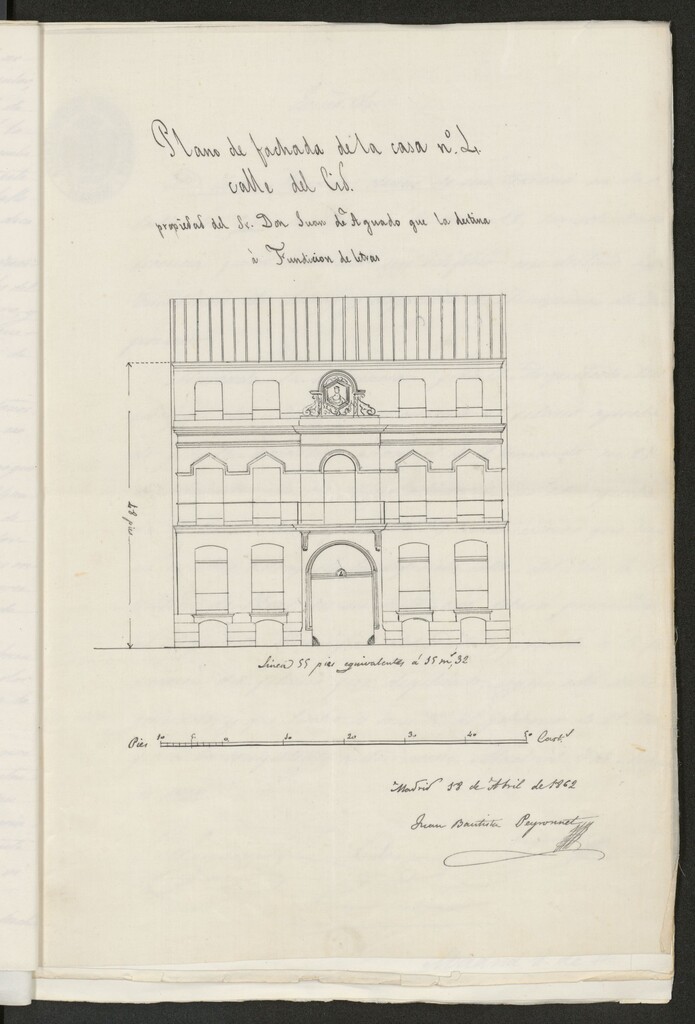 Plano de fachada de la casa nº. 4.
calle del Cid.
propiedad del Sr. Don Juan de Aguado que la destina
á Fundicion de letras
48 pies
Linea 55 pies equivalentes á 15 m, 32
Pies 10 5 0 10 20 30 40 50 Cast.s
Madrid 18 de Abril de 1862
Juan Bautista Peyronnet